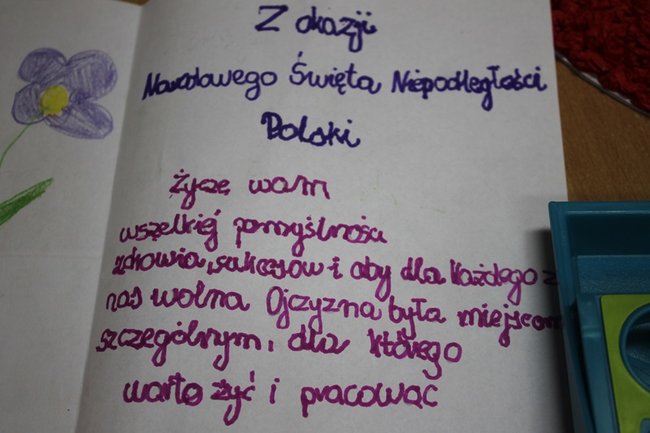 Z okazji
Narodowego Święta Niepodległości
Polski
Życzę wam
wszelkiej pomyślności
zdrowia, sukcesów i aby dla każdego z
nas wolna Ojczyzna była miejscem
szczególnym, dla którego
warto żyć i pracować